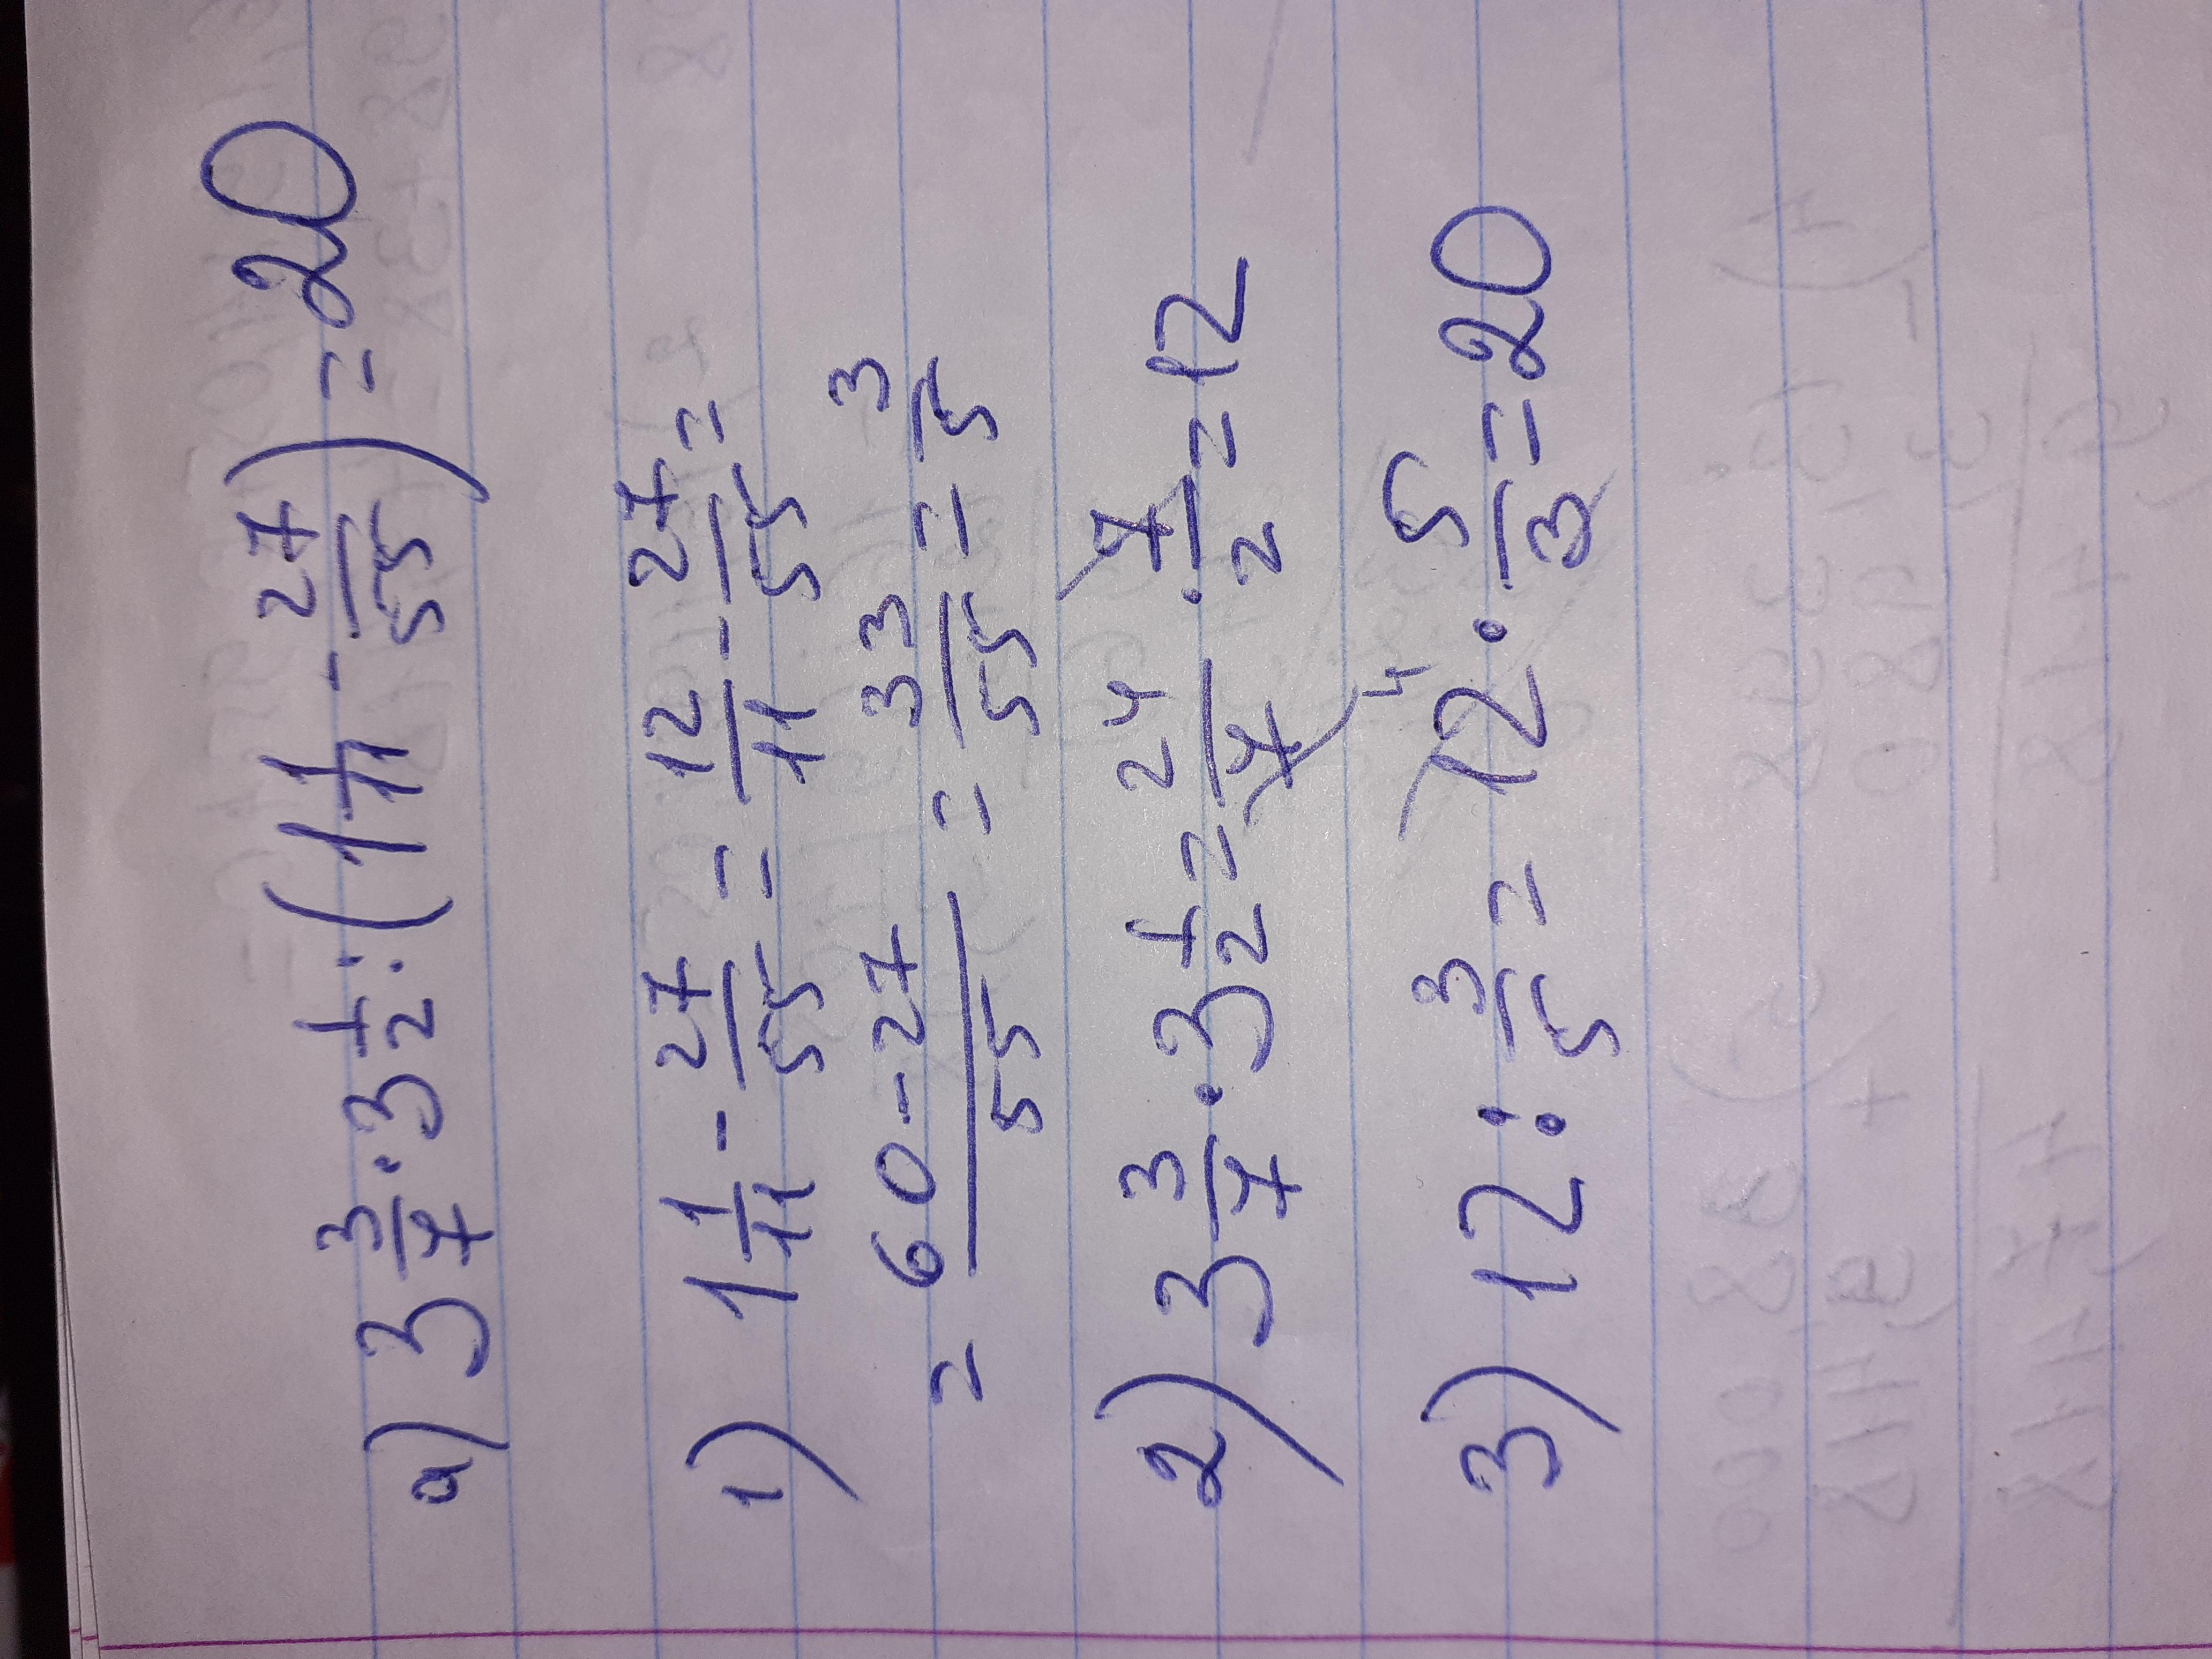 а) 3 3/7 · 3 1/2 : (1 1/11 - 27/55) = 20
1) 1 1/11 - 27/55 = 12/11 - 27/55 =
= 60-27/55 = 33/55 = 3/5
2) 3 3/7 · 3 1/2 = 24/7 · 7/2 = 12
3) 12 : 3/5 = 12 4 · 5/3 = 20